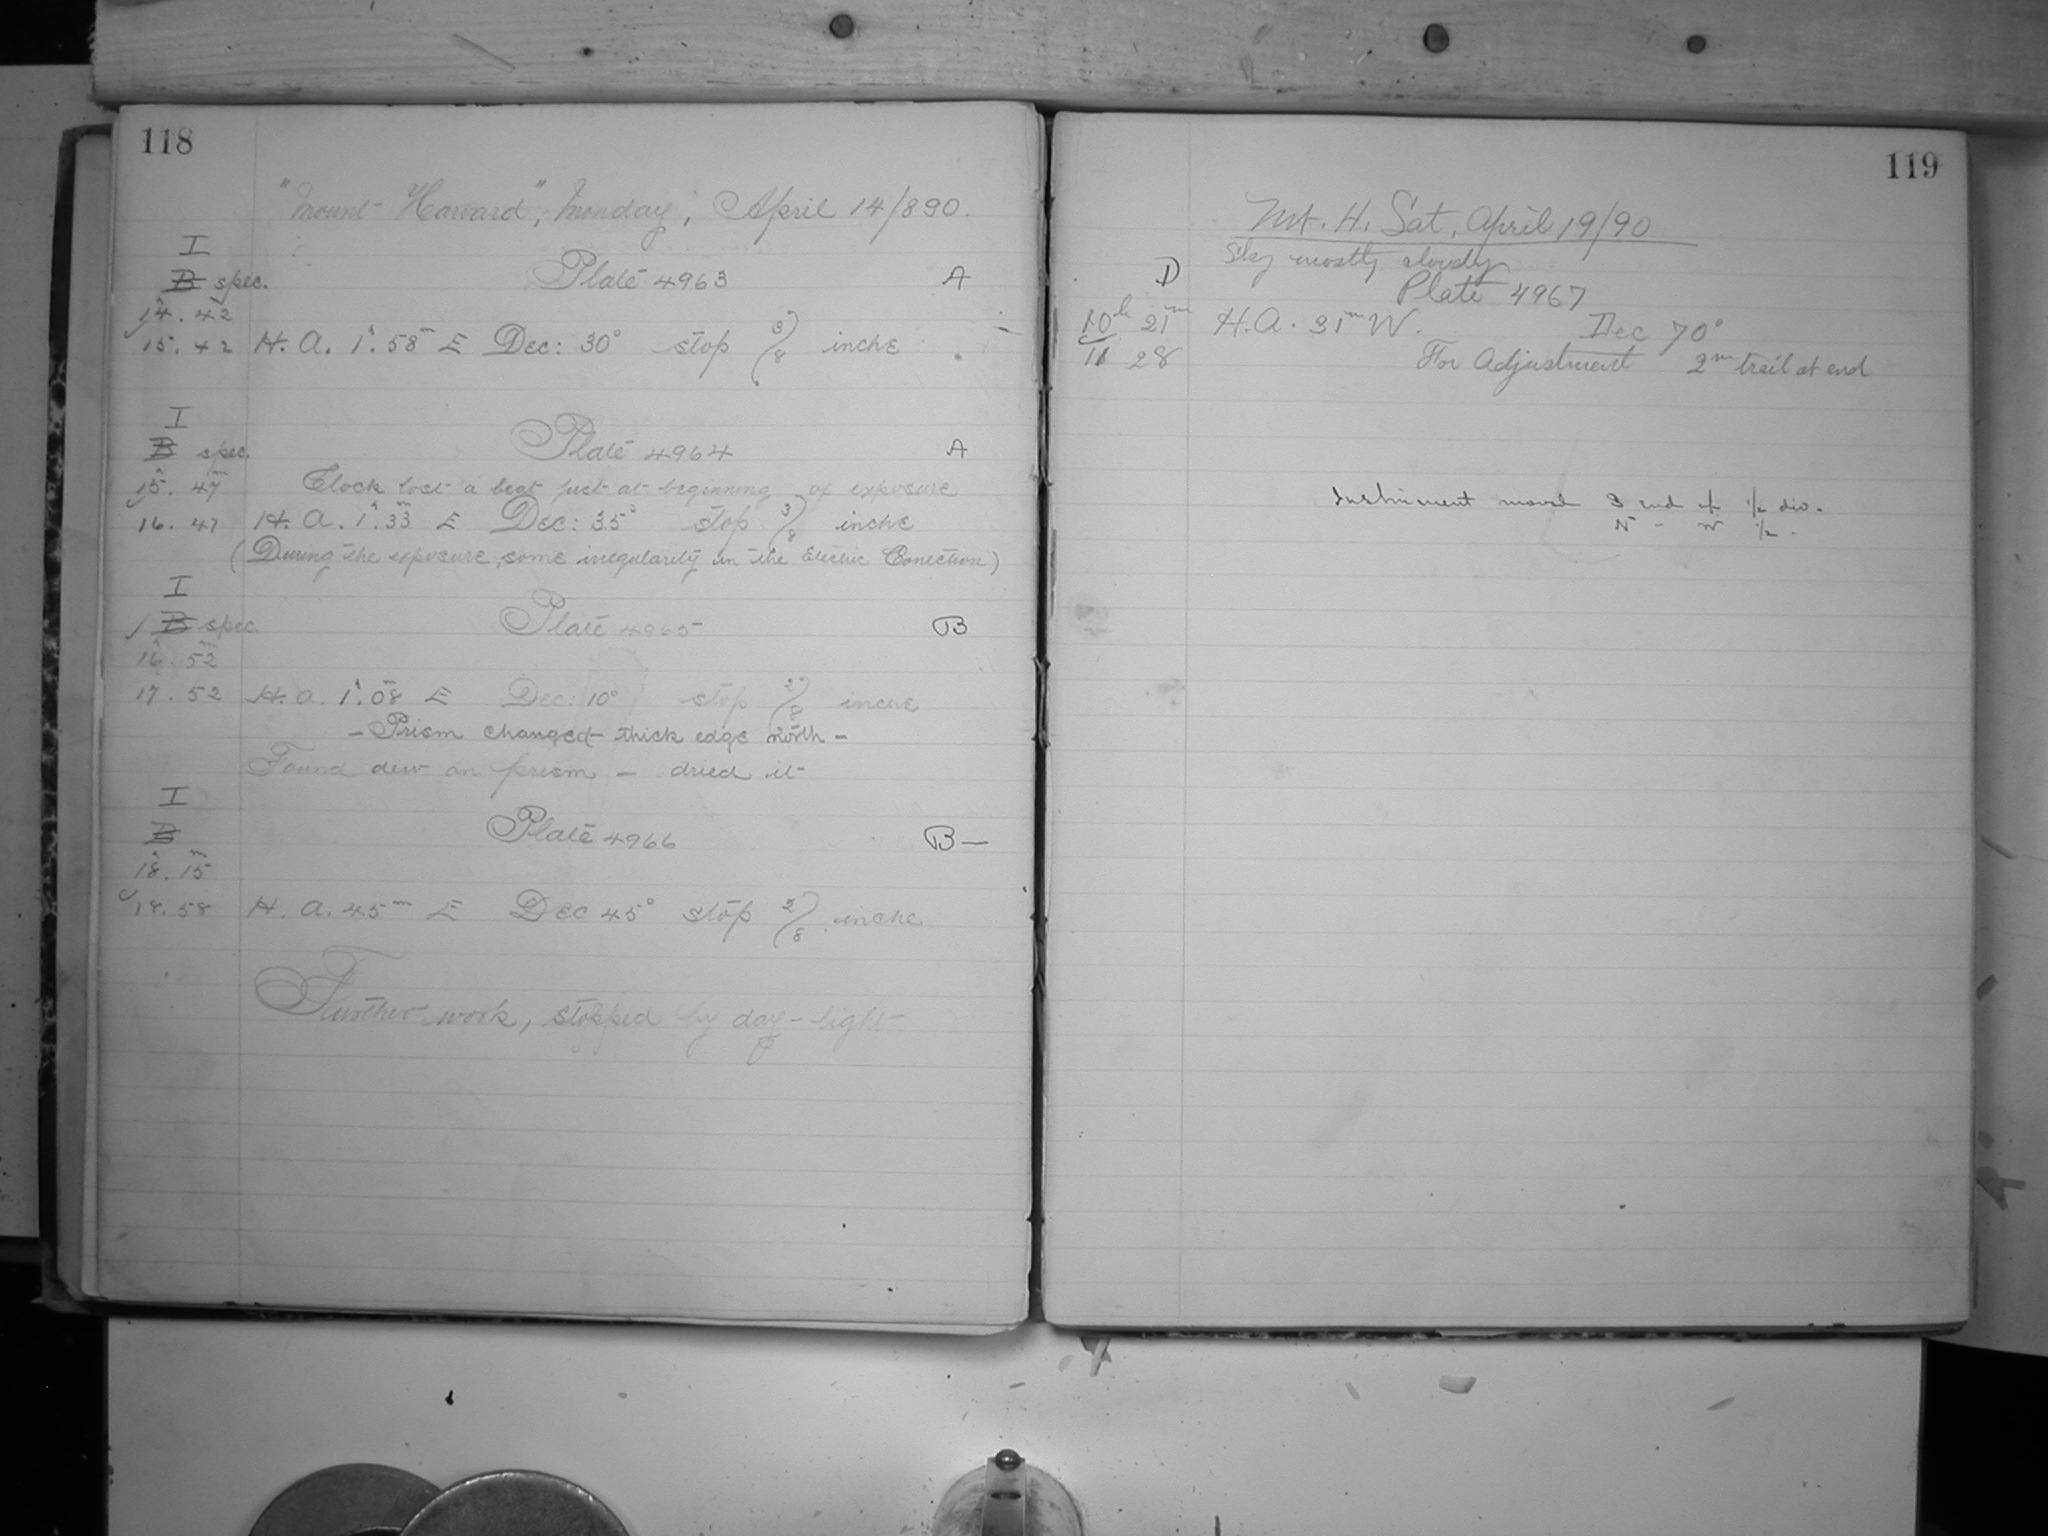 118
"Mount Harvard", Monday, April 14/890.
I
B spec. Plate 4963 A
14h. 42m
15. 42 H. A. 1h. 58m E Dec: 30° stop 3/8 inche
I
B spec. Plate 4964 A
15h. 47m Clock lost a beat just at beginning of exposure
16. 47 H. A. 1h. 33m E Dec: 35° stop 3/8 inche
(During the exposure, some irregularity in the Electric Conection)
I
B spec Plate 4965 B
16h. 52m
17. 52 H. a. 1h. 08m E Dec: 10° stop 2/8 inche
– Prism changed – thick edge north –
Found dew on prism – dried it
I
B Plate 4966 B –
18h. 15m
18. 58 H. A. 45m E Dec 45° stop 2/8 inche
Further work, stopped by day-light
119
Mt. H. Sat, April 19/90
Sky mostly cloudy
D Plate 4967
10h 21m H.A. 31m W. Dec 70°
11 28 For Adjustment 2m trail at end
Instrument moved S end 1/2 div.
N " W 1/2 "